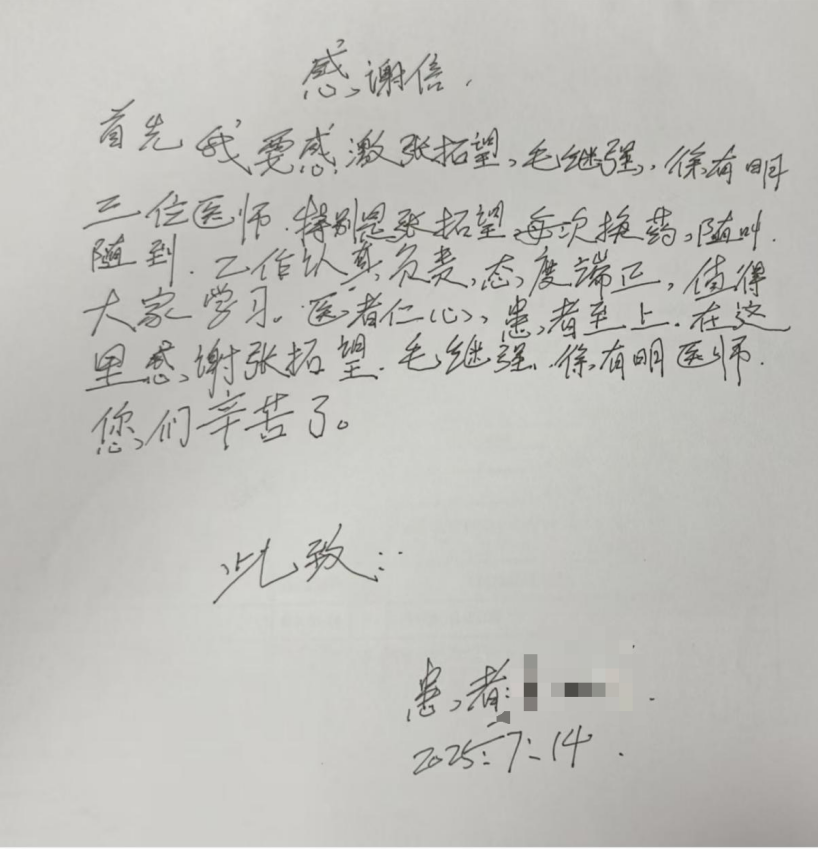 感谢信.
首先我要感激张拓望、毛继强、徐有明
三位医师.特别是张拓望,每次换药,随叫.
随到.工作认真负责,态度端正,值得
大家学习。医者仁心,患者至上.在这
里感谢张拓望.毛继强、徐有明医师.
您们辛苦了。
此致:
患者:
2025.7.14.